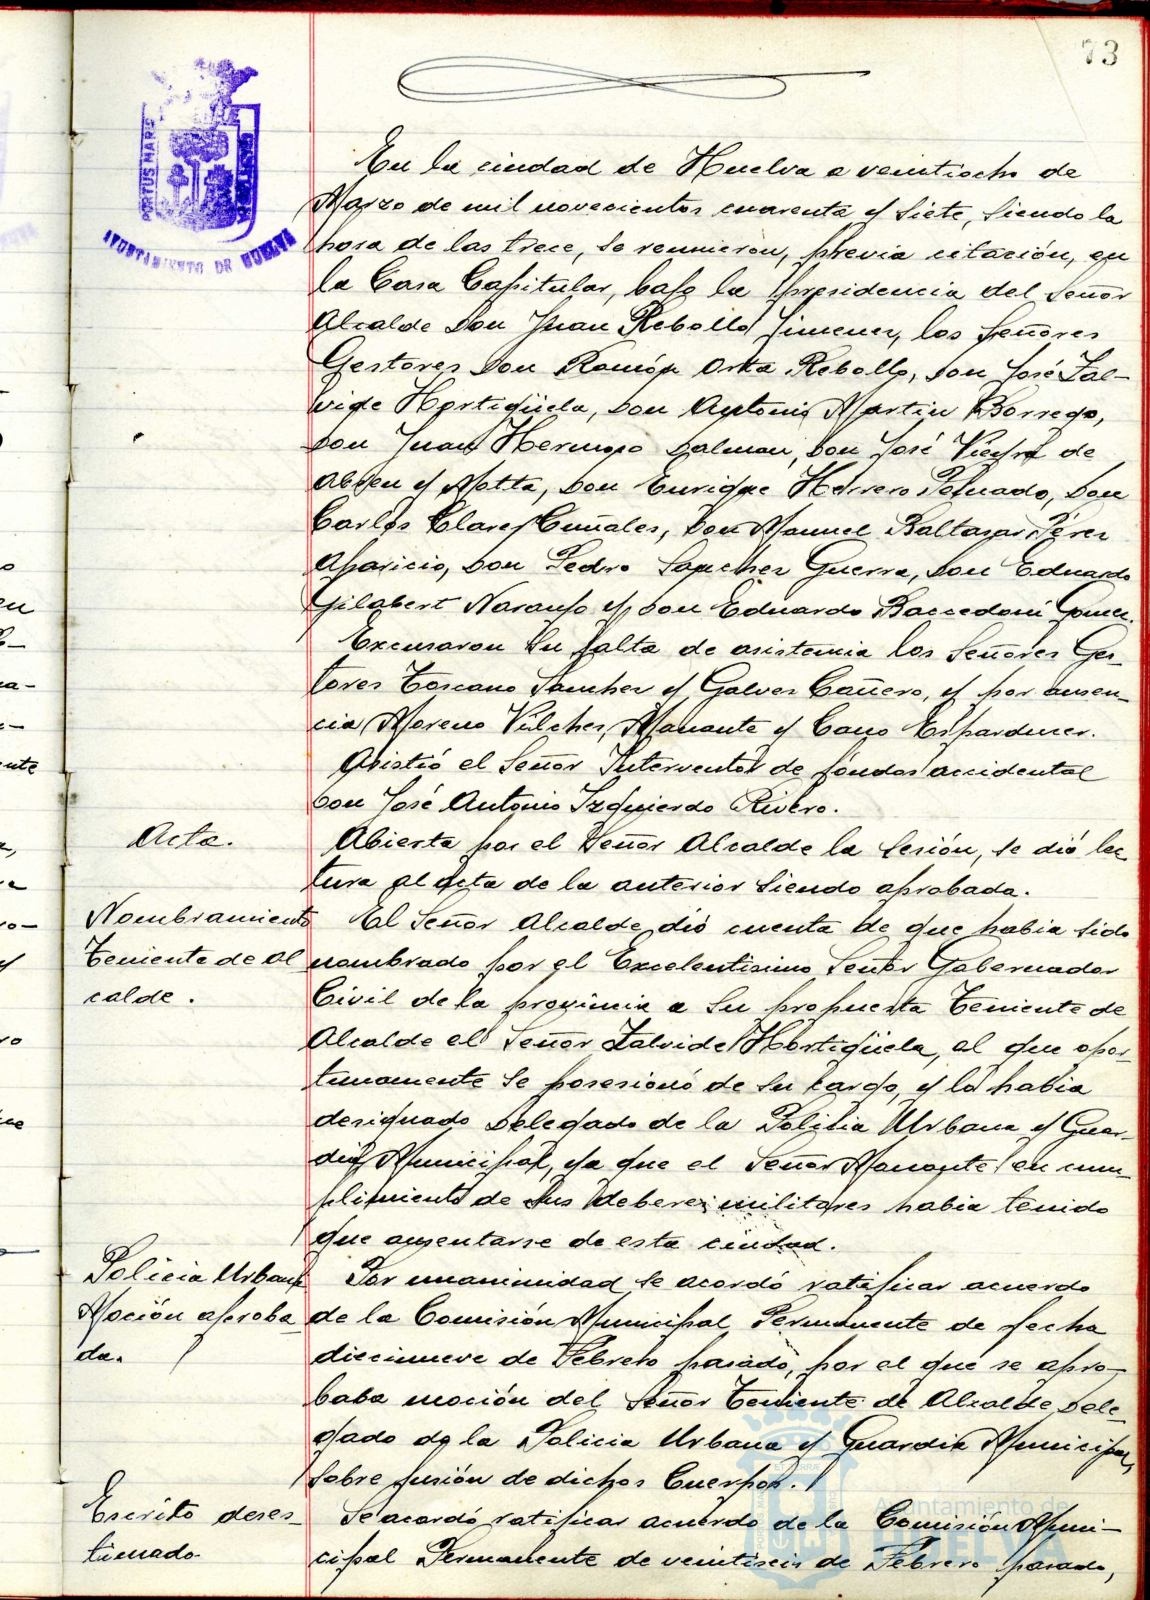 73
PORTUS MARIS
AYUNTAMIENTO DE HUELVA
En la ciudad de Huelva a veintiocho de
Marzo de mil novecientos cuarenta y siete, siendo la
hora de las trece, se reunieron, previa citación, en
la Casa Capitular, bajo la presidencia del Señor
Alcalde Don Juan Rebollo Jimenez, los Señores
Gestores Don Ramón Orta Rebollo, Don José Zal-
vide Hortigüela, Don Antonio Martin Borrego,
Don Juan Hermoso Dalman, Don José Vieyra de
Abreu y Motta, Don Enrique Herrero Peinado, Don
Carlos Clarey Cuñales, Don Manuel Baltasar Pérez
Aparicio, Don Pedro Sanchez Guerra, Don Eduardo
Gilabert Naranjo y Don Eduardo Baccedoni Gomez.
Excusaron su falta de asistencia los Señores Ges-
tores Toscano Sanchez y Galvez Cañero, y por ausen-
cia Moreno Vilches, Manante y Cano Esparducer.
Asistió el Señor Interventor de fondos accidental
Don José Antonio Izquierdo Rivero.
Acta.
Abierta por el Señor Alcalde la sesión, se dió lec-
tura al acta de la anterior siendo aprobada.
Nombramiento
Teniente de Al
calde.
El Señor Alcalde dió cuenta de que habia sido
nombrado por el Excelentisimo Señor Gobernador
Civil de la provincia a su propuesta Teniente de
Alcalde el Señor Zalvide Hortigüela, al que opor-
tunamente se posesionó de su cargo, y lo habia
designado Delegado de la Policia Urbana y Guar-
dia Municipal, ya que el Señor Manante en cum-
plimiento de sus deberes militares habia tenido
que ausentarse de esta ciudad.
Policia Urbana
Moción aproba-
da.
Por unanimidad se acordó ratificar acuerdo
de la Comisión Municipal Permanente de fecha
diecinueve de Febrero pasado, por el que se apro-
baba moción del Señor Teniente de Alcalde Dele-
gado de la Policia Urbana y Guardia Municipal,
sobre fusión de dichos Cuerpos.
Escrito deses-
timado
Se acordó ratificar acuerdo de la Comisión Muni-
cipal Permanente de veintiseis de Febrero pasado,
Ayuntamiento de
HUELVA